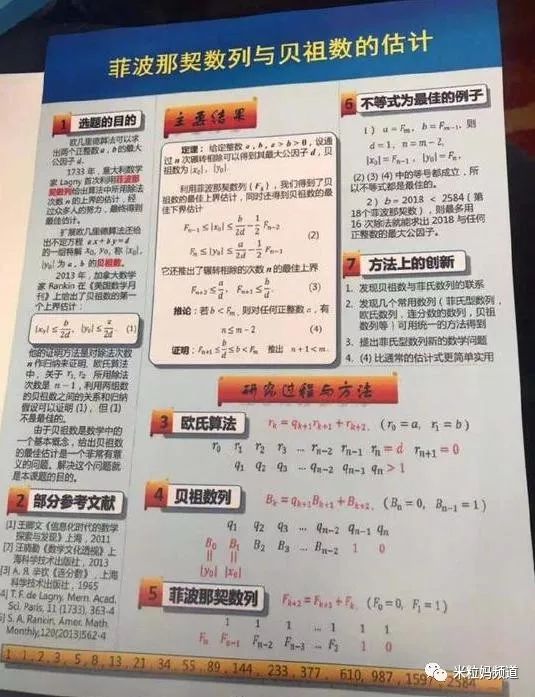 菲波那契数列与贝祖数的估计
1 选题的目的
欧几里德算法可以求
出两个正整数 a, b 的最大
公因子 d.
1733 年，意大利数学
家 Lagny 首次利用菲波那
契数列给出算法中所用除法
次数 n 的上界的估计，经
过众多人的努力，最终得到
最佳估计。
扩展欧几里德算法还给
出不定方程 ax+by=d
的一组特解 x₀, y₀, 称 |x₀|,
|y₀| 为 a, b 的贝祖数。
2013 年，加拿大数学
家 Rankin 在《美国数学月
刊》上给出了贝祖数的第一
个上界估计：
|x₀| ≤ b/2d, |y₀| ≤ a/2d. (1)
他的证明方法是对除法次数
n 作归纳来证明, 欧氏算法
中，关于 r₁, r₂ 所用除法
次数是 n−1，利用两组数
的贝祖数之间的关系和归纳
假设可以证明 (1)，但 (1)
不是最佳的。
由于贝祖数是数学中的
一个基本概念，给出贝祖数
的最佳估计是一个非常有意
义的问题。解决这个问题就
是本课题的目的。
2 部分参考文献
[1] 王卿文《信息化时代的数学
探索与发现》上海，2011
汪晓勤《数学文化透视》上
海科学技术出版社，2013
[3] A. Я. 辛钦《连分数》，上海
科学技术出版社，1965
4] T. F. de Lagny, Mem. Acad.
Sci. Paris, 11 (1733), 363-4
5] S. A. Rankin, Amer. Math.
Monthly,120(2013)562-4
主要结果
定理：给定整数 a, b, a > b > 0, 设通
过 n 次辗转相除可以得到其最大公因子 d，贝
祖数为 |x₀|, |y₀|.
利用菲波那契数列 {Fₖ}，我们得到了贝
祖数的最佳上界估计，同时还得到贝祖数的最
佳下界估计
Fₙ₋₁ ≤ |x₀| ≤ b/2d − 1/2 Fₙ₋₂
(2)
Fₙ ≤ |y₀| ≤ a/2d − 1/2 Fₙ₋₁
它还推出了辗转相除的次数 n 的最佳上界
Fₙ₊₂ ≤ a/d, Fₙ₊₁ ≤ b/d. (3)
推论：若 b < Fₘ, 则对任何正整数 a，有
n ≤ m − 2 (4)
证明：Fₙ₊₁ ≤ b/d ≤ b < Fₘ 推出 n + 1 < m.
6 不等式为最佳的例子
1) a = Fₘ, b = Fₘ₋₁, 则
d = 1, n = m − 2,
|x₀| = Fₙ₋₁, |y₀| = Fₙ.
(2) (3) (4) 中的等号都成立，所
以不等式都是最佳的。
2) b = 2018 < 2584 (第
18个菲波那契数)，则最多用
16 次除法就能求出 2018 与任何
正整数的最大公因子。
7 方法上的创新
1. 发现贝祖数与菲氏数列的联系
2. 发现几个常用数列（菲氏型数列，
欧氏数列，连分数的数列，贝祖
数列等）可用统一的方法得到
3. 提出菲氏型数列新的数学问题
4. (4) 比通常的估计式更简单实用
研究过程与方法
3 欧氏算法 rₖ = qₖ₊₁rₖ₊₁ + rₖ₊₂, (r₀ = a, r₁ = b)
r₀ r₁ r₂ r₃ … rₙ₋₂ rₙ₋₁ rₙ = d rₙ₊₁ = 0
q₁ q₂ q₃ … qₙ₋₂ qₙ₋₁ qₙ > 1
4 贝祖数列 Bₖ = qₖ₊₁Bₖ₊₁ + Bₖ₊₂, (Bₙ = 0, Bₙ₋₁ = 1)
q₁ q₂ q₃ … qₙ₋₂ qₙ₋₁ qₙ
B₀ B₁ B₂ B₃ … Bₙ₋₂ 1 0
|| ||
|y₀| |x₀|
5 菲波那契数列 Fₖ₊₂ = Fₖ₊₁ + Fₖ, (F₀ = 0, F₁ = 1)
1 1 1 … 1 1 1
Fₙ Fₙ₋₁ Fₙ₋₂ Fₙ₋₃ … F₂ 1 0
1, 1, 2, 3, 5, 8, 13, 21, 34, 55, 89, 144, 233, 377, 610, 987, 1597, 2584
米粒妈频道